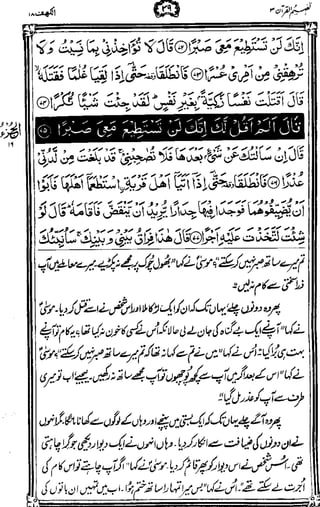 تفہیم القرآن ۳
۳۹
الکھف ۱۸
اِنَّكَ لَنْ تَسْتَطِيْعَ مَعِيَ صَبْرًا ﴿۷۲﴾ قَالَ لَا تُؤَاخِذْنِيْ بِمَا نَسِيْتُ وَلَا
تُرْهِقْنِيْ مِنْ اَمْرِيْ عُسْرًا ﴿۷۳﴾ فَانْطَلَقَا حَتّٰۤى اِذَا لَقِيَا غُلٰمًا فَقَتَلَهٗ
قَالَ اَقَتَلْتَ نَفْسًا زَكِيَّةًۢ بِغَيْرِ نَفْسٍ لَقَدْ جِئْتَ شَيْـًٔا نُّكْرًا ﴿۷۴﴾
قَالَ اَلَمْ اَقُلْ لَّكَ اِنَّكَ لَنْ تَسْتَطِيْعَ مَعِيَ صَبْرًا ﴿۷۵﴾
قَالَ اِنْ سَاَلْتُكَ عَنْ شَيْءٍۭ بَعْدَهَا فَلَا تُصٰحِبْنِيْ قَدْ بَلَغْتَ مِنْ لَّدُنِّيْ
عُذْرًا ﴿۷۶﴾ فَانْطَلَقَا حَتّٰۤى اِذَاۤ اَتَيَاۤ اَهْلَ قَرْيَةِ اِۨسْتَطْعَمَاۤ اَهْلَهَا فَاَبَوْا
اَنْ يُّضَيِّفُوْهُمَا فَوَجَدَا فِيْهَا جِدَارًا يُّرِيْدُ اَنْ يَّنْقَضَّ فَاَقَامَهٗ قَالَ لَوْ
شِئْتَ لَتَّخَذْتَ عَلَيْهِ اَجْرًا ﴿۷۷﴾ قَالَ هٰذَا فِرَاقُ بَيْنِيْ وَبَيْنِكَ سَاُنَبِّئُكَ
تم میرے ساتھ صبر نہیں کر سکتے؟” موسیٰؑ نے کہا “بھول چوک پر مجھے نہ پکڑیے۔ میرے معاملے میں آپ
ذرا سختی سے کام نہ لیں۔”
پھر وہ دونوں چلے، یہاں تک کہ ان کو ایک لڑکا ملا اور اس شخص نے اسے قتل کر دیا۔ موسیٰؑ
نے کہا “آپ نے ایک بے گناہ کی جان لے لی حالانکہ اُس نے کسی کا خون نہ کیا تھا؟ یہ کام تو آپ نے
بہت ہی بُرا کیا۔” اُس نے کہا “میں نے تم سے کہا نہ تھا کہ تم میرے ساتھ صبر نہیں کر سکتے؟” موسیٰؑ
نے کہا “اس کے بعد اگر میں آپ سے کچھ پوچھوں تو آپ مجھے ساتھ نہ رکھیں۔ لیجیے، اب تو میری
طرف سے آپ کو عذر مل گیا۔”
پھر وہ آگے چلے یہاں تک کہ ایک بستی میں پہنچے اور وہاں کے لوگوں سے کھانا مانگا۔ مگر انہوں
نے ان دونوں کی ضیافت سے انکار کر دیا۔ وہاں انہوں نے ایک دیوار دیکھی جو گرا چاہتی
تھی۔ اُس شخص نے اس دیوار کو پھر قائم کر دیا۔ موسیٰؑ نے کہا “اگر آپ چاہتے تو اس کام کی
اُجرت لے سکتے تھے۔” اُس نے کہا “بس میرا تمہارا ساتھ ختم ہوا۔ اب میں تمہیں ان باتوں کی